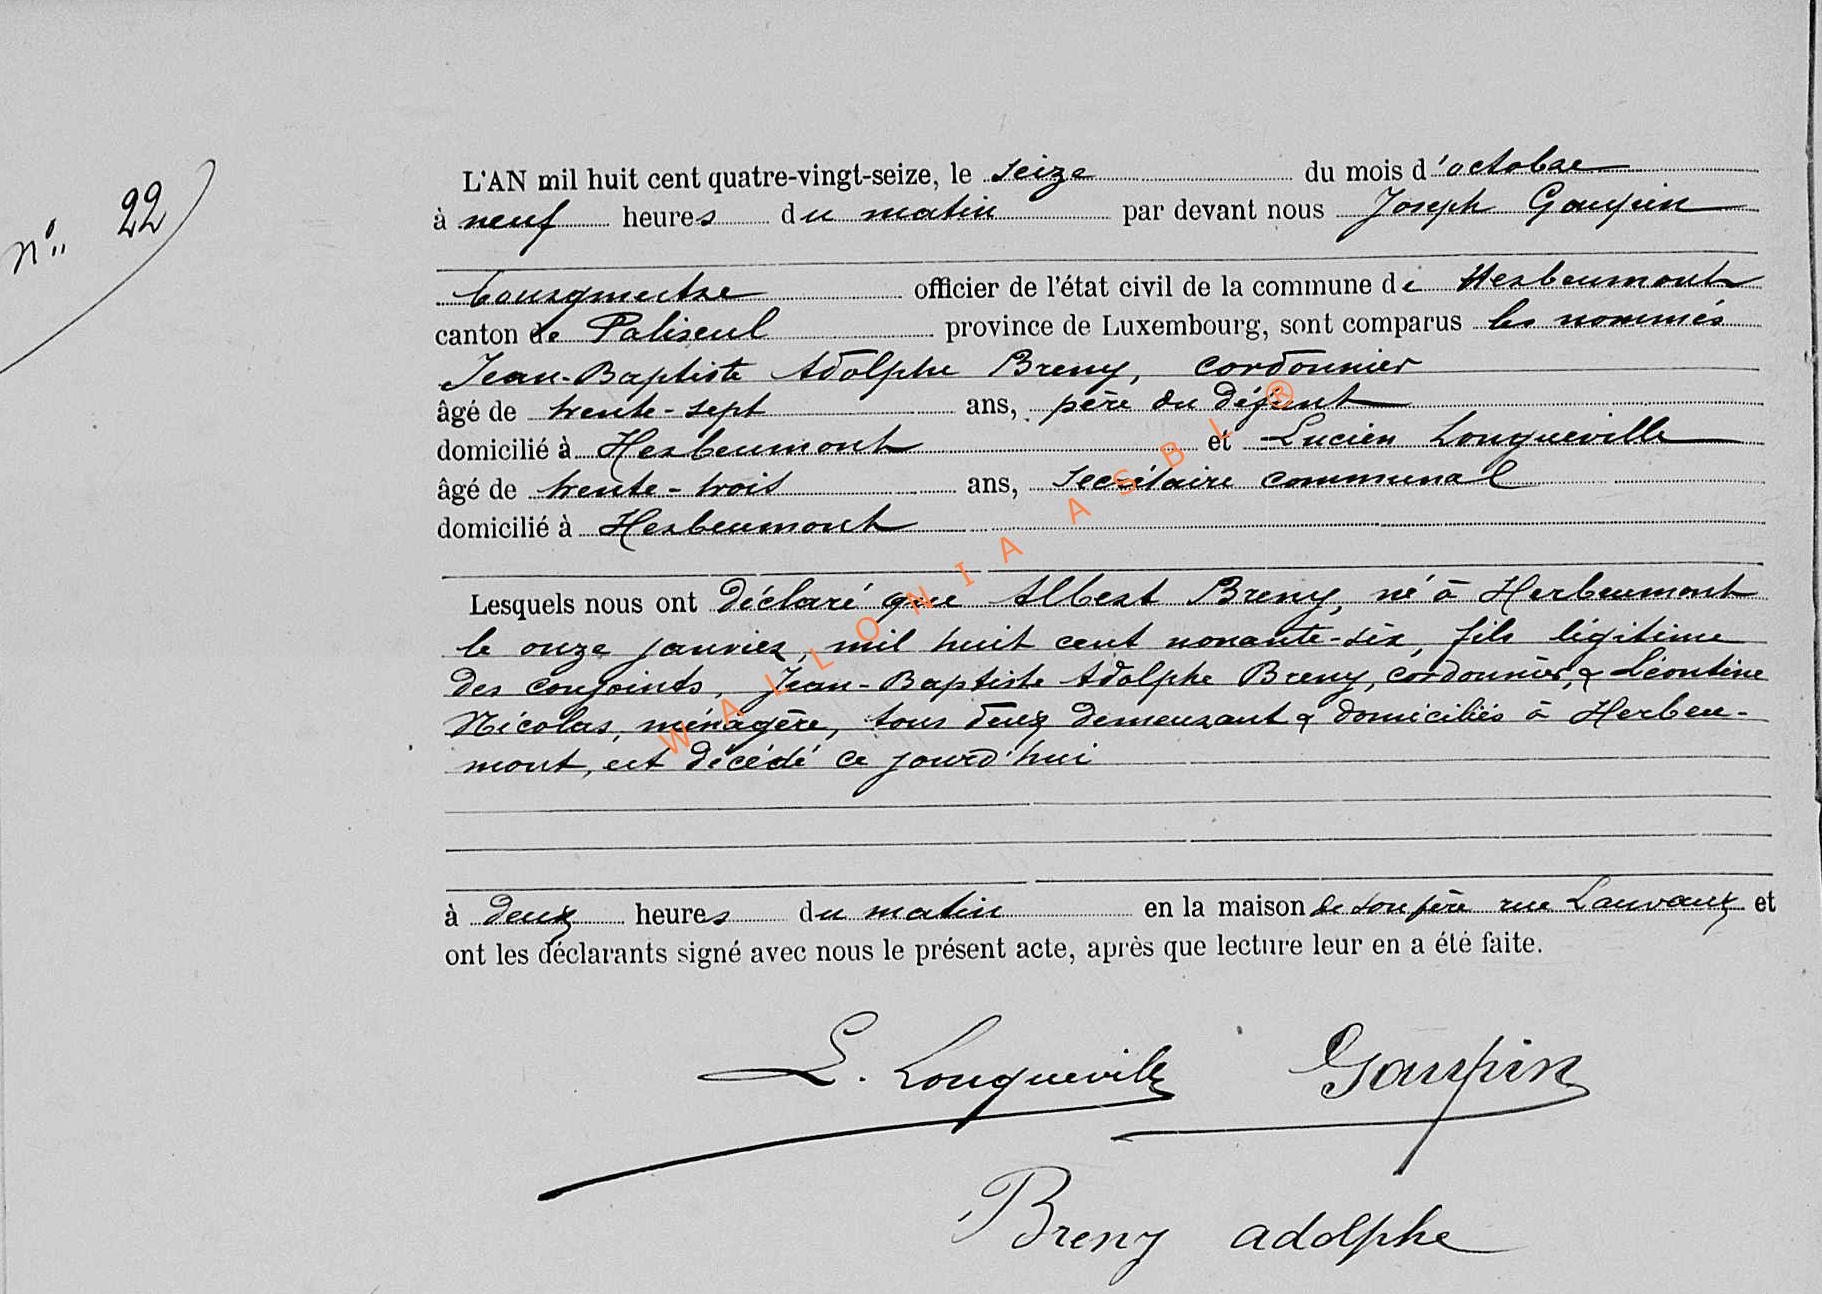 N° 22
L'AN mil huit cent quatre-vingt-seize, le seize du mois d'octobre
à neuf heures du matin par devant nous Joseph Gaupin
bourgmestre officier de l'état civil de la commune de Herbeumont
canton de Paliseul province de Luxembourg, sont comparus les nommés
Jean-Baptiste Adolphe Breny, cordonnier
âgé de trente-sept ans, père du défunt
domicilié à Herbeumont et Lucien Longueville
âgé de trente-trois ans, secrétaire communal
domicilié à Herbeumont
Lesquels nous ont déclaré que Albert Breny, né à Herbeumont
le onze janvier, mil huit cent nonante-six, fils légitime
des conjoints, Jean-Baptiste Adolphe Breny, cordonnier, & Léontine
Nicolas, ménagère, tous deux demeurant & domiciliés à Herbeu-
mont, est décédé ce jourd'hui
à deux heures du matin en la maison de son père rue Lauvaux et
ont les déclarants signé avec nous le présent acte, après que lecture leur en a été faite.
L. Longueville Gaupin
Breny adolphe
WALLONIA ASBL ®